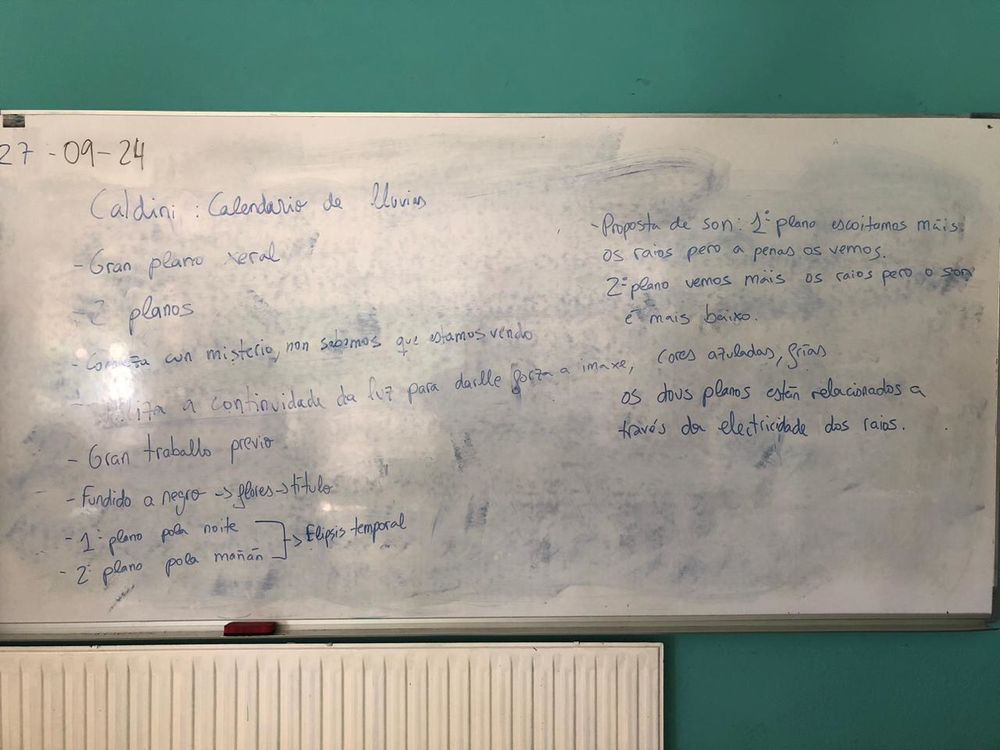 27-09-24
Caldini: Calendario de lluvias
- Gran plano xeral
- 2 planos
- Comeza cun misterio, non sabemos que estamos vendo
- Utiliza a continuidade da luz para darlle forza a imaxe, cores azuladas, frías
- Gran traballo previo
- Fundido a negro -> flores -> título
- 1º plano pola noite
- 2º plano pola mañán
-> Elipsis temporal
- Proposta de son: 1º plano escoitamos máis
os raios pero a penas os vemos.
2º plano vemos máis os raios pero o son
é mais baixo.
os dous planos están relacionados a
través da electricidade dos raios.